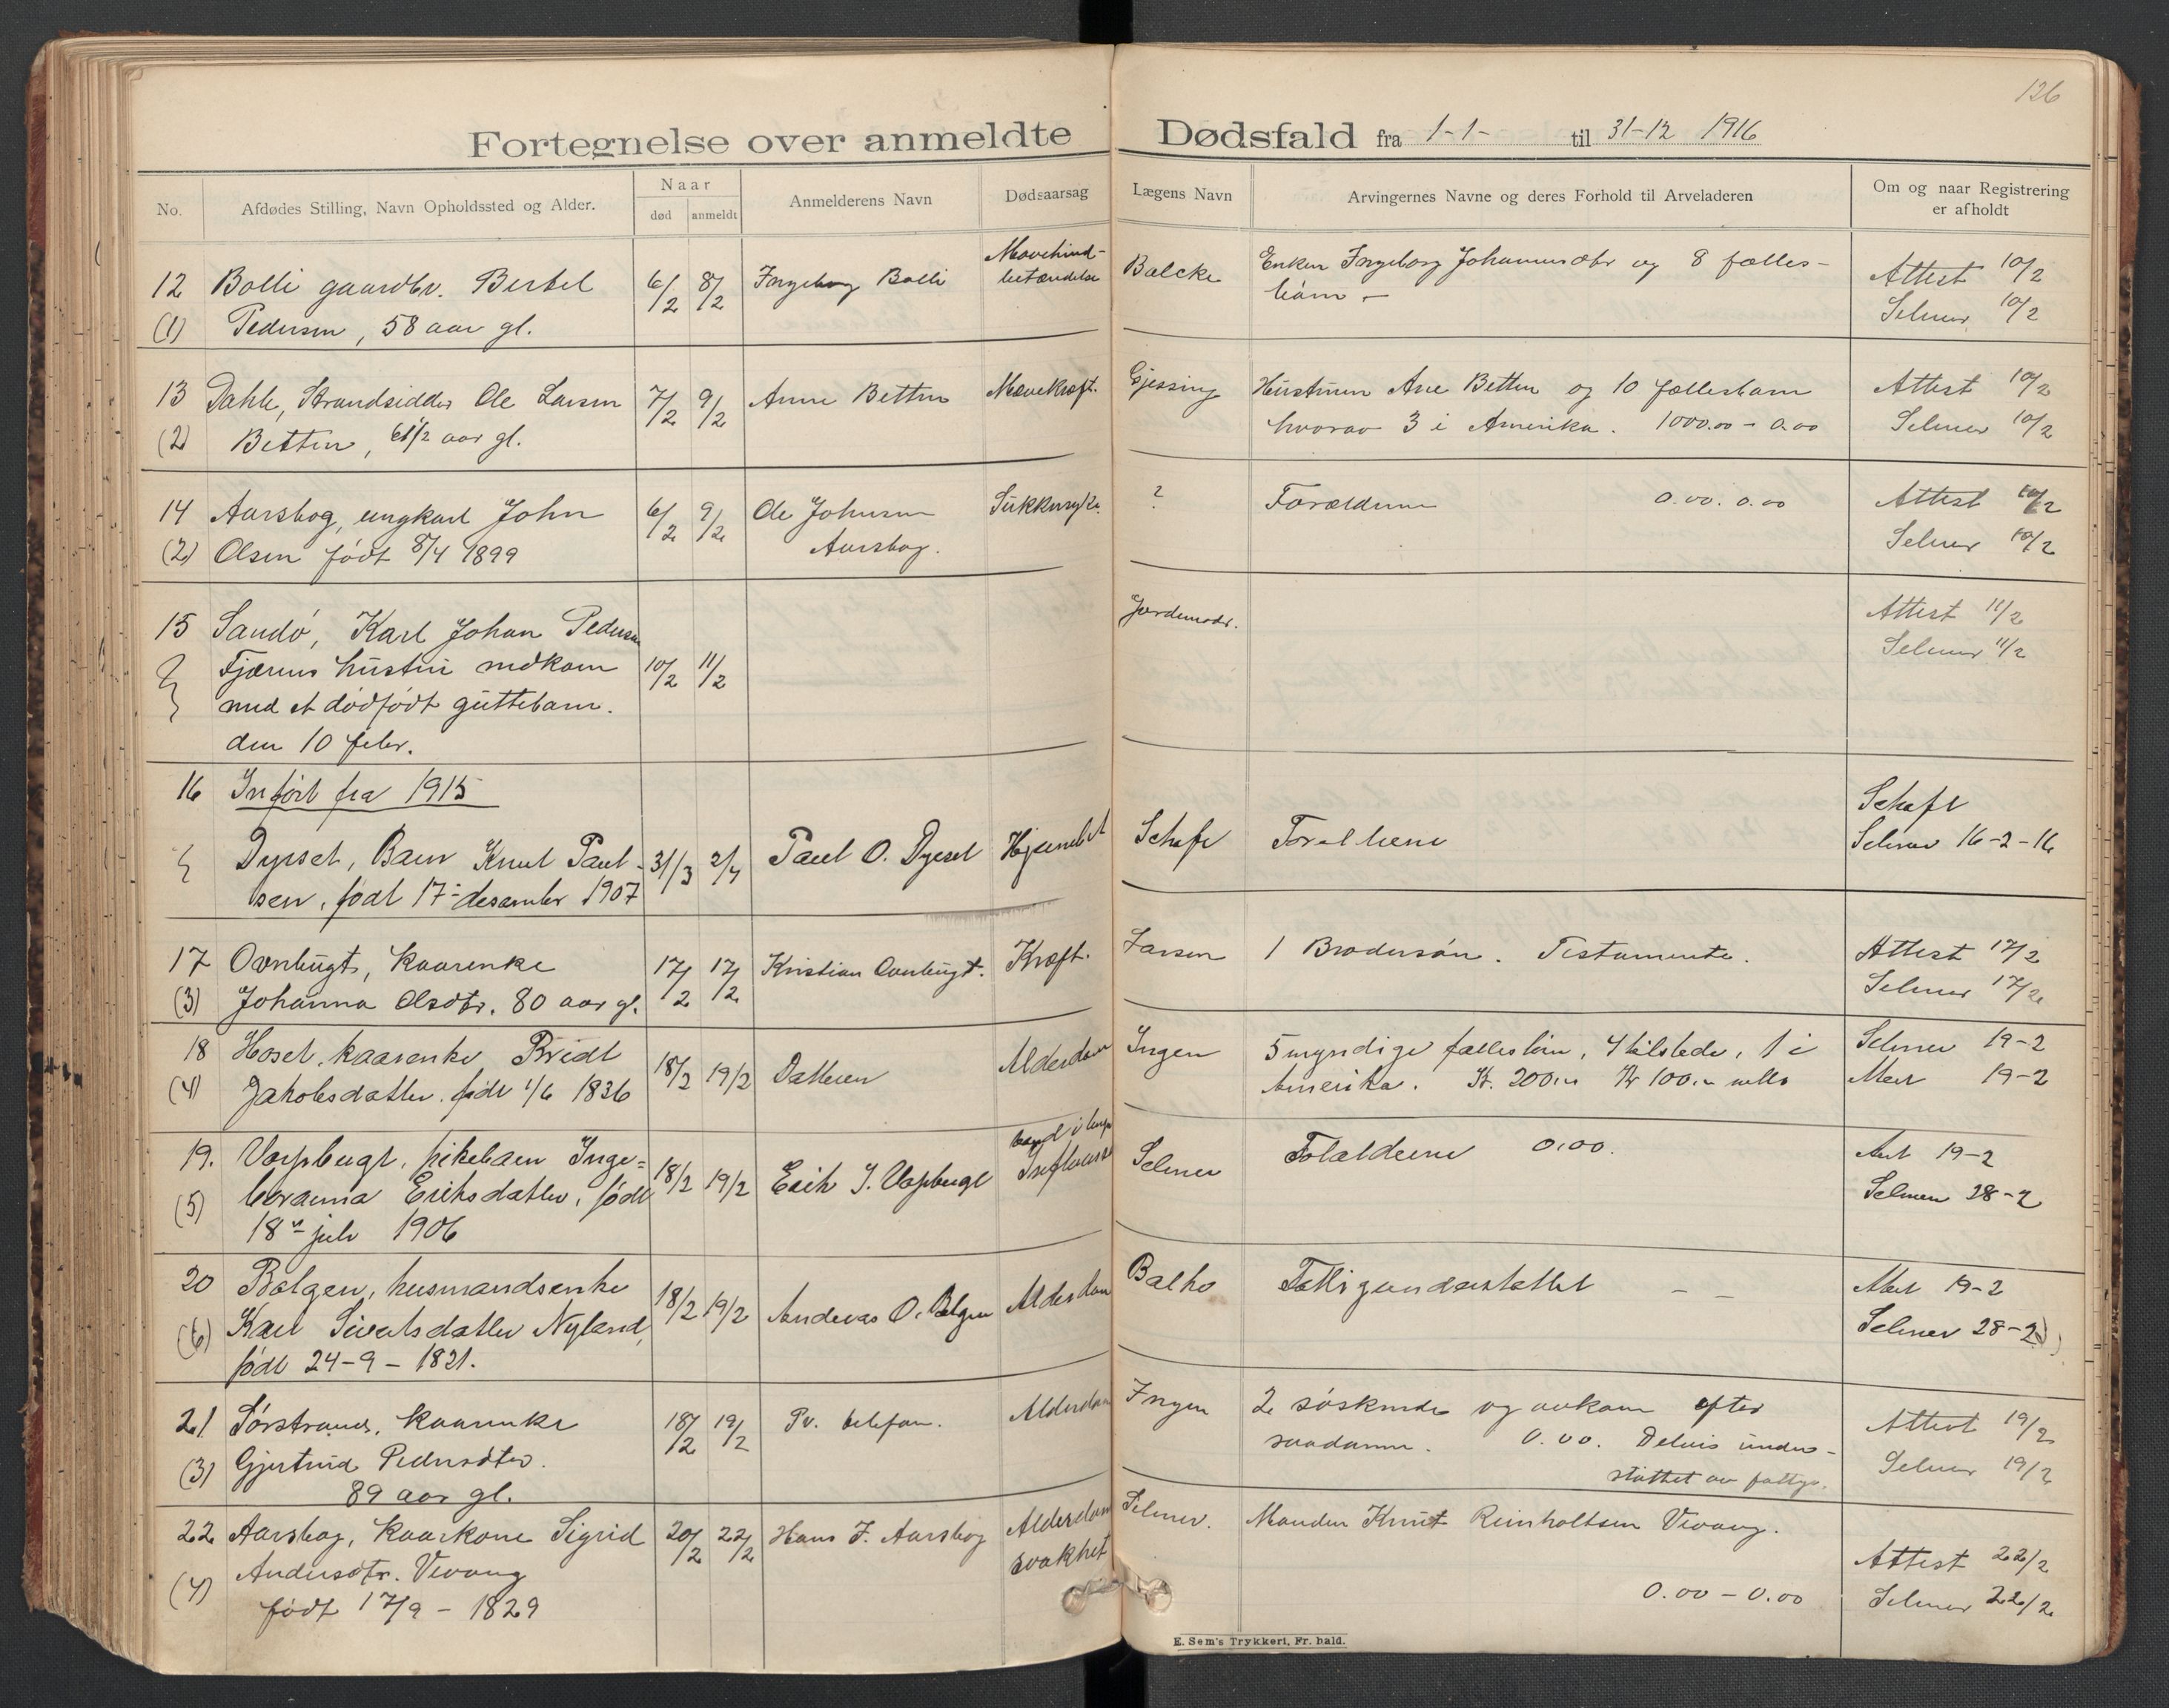 126
Fortegnelse over anmeldte Dødsfald fra 1-1- til 31-12 1916
No.
Afdødes Stilling, Navn Opholdssted og Alder.
Naar
død
anmeldt
Anmelderens Navn
Dødsaarsag
Lægens Navn
Arvingernes Navne og deres Forhold til Arveladeren
Om og naar Registrering
er afholdt
12 Bolli gaardbr. Bertel
(1) Pedersen, 58 aar gl.
6/2 8/2 Ingeborg Bolli
Mavehind-
betændelse
Balcke
Enken Ingeborg Johannesdtr og 8 fælles-
børn -
Attest 10/2
Selmer 10/2
13 Dahle, Strandsidder Ole Larsen
(2) Betten, 61 1/2 aar gl.
7/2 9/2 Anne Betten
Mavekræft.
Gjessing
Hustruen Ane Betten og 10 fællesbarn
hvorav 3 i Amerika. 1000.00 - 0.00
Attest 10/2
Selmer 10/2
14 Aarsbog, ungkarl John
(2) Olsen født 8/4 1899
6/2 9/2 Ole Johnsen
Aarsbog.
Sukkersyke.
?
Forældrene 0.00. 0.00
Attest 10/2
Selmer 10/2
15 Sandø, Karl Johan Pedersen
Fjærens hustru nedkom
med et dødfødt guttebarn.
den 10 febr.
10/2 11/2
Jordemodr.
Attest 11/2
Selmer 11/2
16 Inført fra 1915
Dyrset, Barn Knut Paul-
sen, født 17 desember 1907
31/3 2/4 Paul O. Dyrset
Schaft
Forældrene
Schaft
Selmer 16-2-16
17 Ovnbugt, kaarenke
(3) Johanna Olsdtr. 80 aar gl.
17/2 17/2 Kristian Ovnbugt.
Kræft.
Larsen
1 Brodersøn. Testamente.
Attest 17/2
Selmer 17/2
18 Hoset, kaarenke Bridt
(4) Jakobsdatter. født 1/6 1836
18/2 19/2 Datteren
Alderdom
Ingen
5 myndige fællesbørn, 4 tilstede, 1 i
Amerika. Kr. 200.- Kr 100.- netto
Selmer 19-2
19-2
19. Vaagbugt, pikebarn Inge-
(5) boranna Eriksdatter, født
18 juli 1906
18/2 19/2
Vand i
Influensa
Selmer
Forældrene 0.00.
19-2
Selmer 28-2
20 Bolgen, husmandsenke
(6) Kari Sivertsdatter Nyland,
født 24-9-1821.
18/2 19/2 Andreas O. Bolgen
Alderdom
Balke
Fattigunderstøttet - -
19-2
Selmer 28-2
21 Sørstrand, kaarenke
(3) Gjertrud Pedersdter.
89 aar gl.
18/2 19/2 Pr. telefon.
Alderdom
Ingen
2 søskende og avkom efter
saadanne. 0.00. Delvis under-
støttet av fattigv.
Attest 19/2
Selmer 19/2
22 Aarsbog, kaarkone Sigrid
(4) Andersdtr. Vevang
født 17/9 - 1829
20/2 22/2 Hans J. Aarsbog
Alderdom
svakhet
Selmer.
Manden Knut Reinholtsen Vevang.
0.00 - 0.00
Attest 22/2
Selmer 22/2
E. Sem's Trykkeri, Fr. hald.